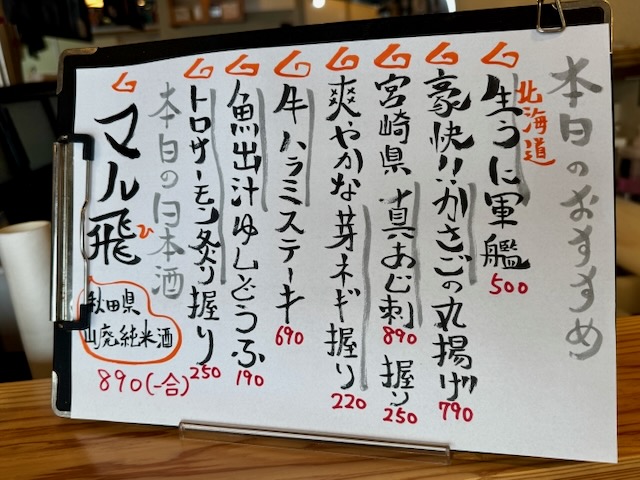 本日のおすすめ
北海道
生うに軍艦
500
豪快!!かさごの丸揚げ
790
宮崎県 真あじ刺 890 握り 250
爽やかな芽ネギ握り
220
牛ハラミステーキ
690
魚出汁ゆしどうふ
190
トロサーモン炙り握り
250
本日の日本酒
マル飛
ひ
秋田県
山廃純米酒
890(一合)